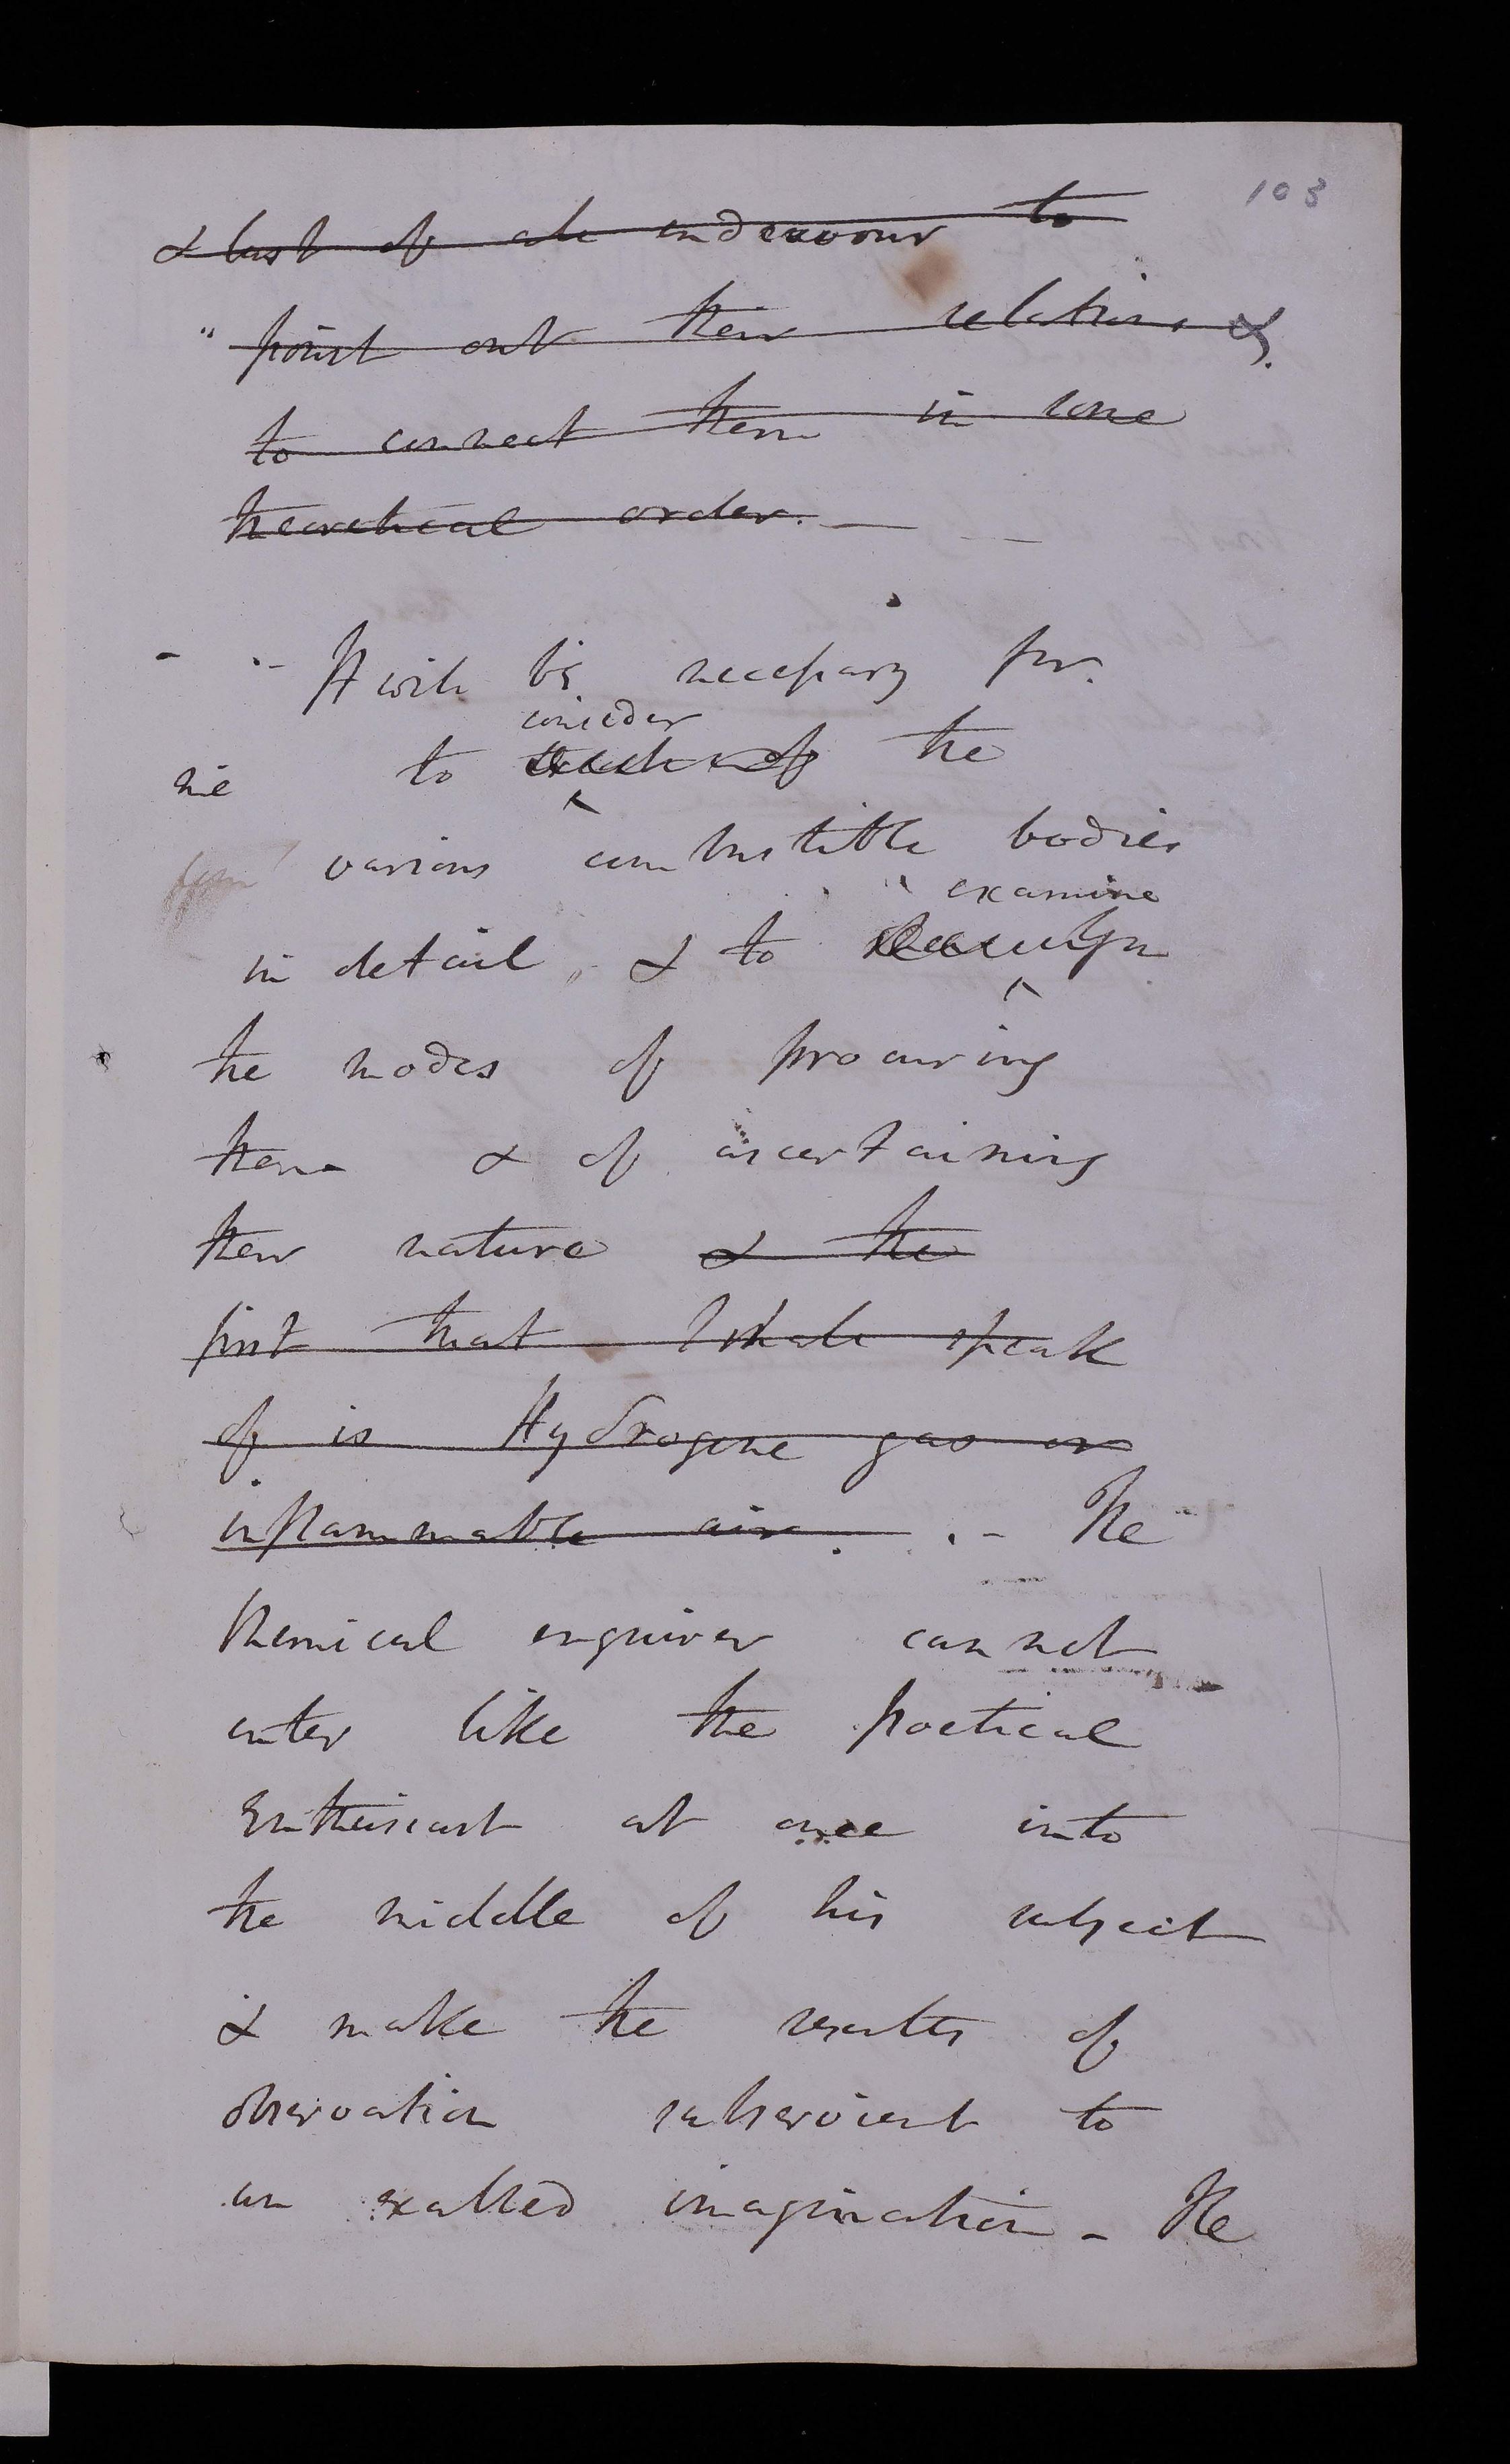 103
& last of all endeavour to
" point out their relations &
to connect them in one
theoretical order. —
- - It will be necessary for
consider
me to the
various combustible bodies
examine
in detail, & to
the modes of procuring
them & of ascertaining
their nature & the
first that I shall speak
of is Hydrogene gas or
inflammable air. - The
Chemical enquirer cannot
enter like the poetical
Enthusiast at once into
the middle of his subject
& make the results of
observation subservient to
an exalted imagination - He